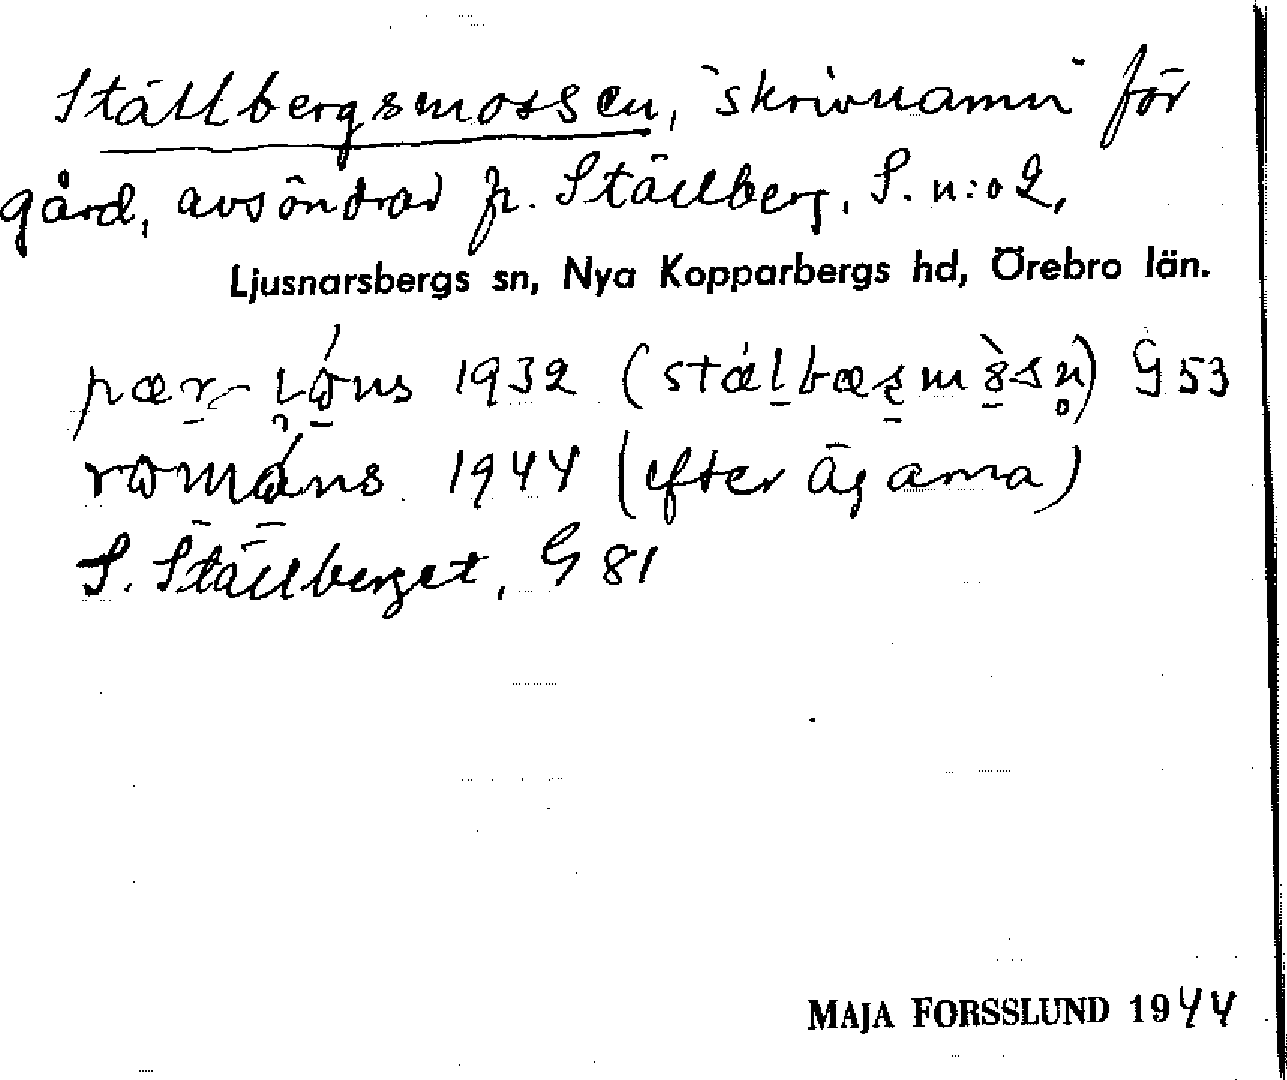 Ställbergsmossen, "skrivnamn" för
gård, avsöndrad fr. Ställberg, S. n:o 2,
Ljusnarsbergs sn, Nya Kopparbergs hd, Örebro län.
1932 (stálbæsmòsn̥) G 53
románs 1944 (efter ägarna)
S. Ställberget, G 81
MAJA FORSSLUND 1944